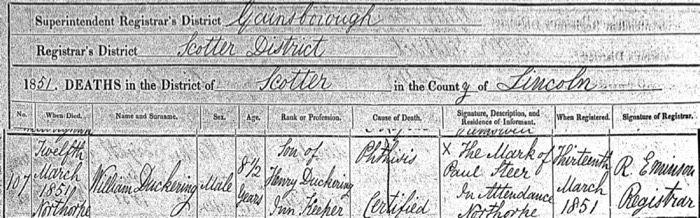 Superintendent Registrar's District Gainsborough
Registrar's District Scotter District
1851. DEATHS in the District of Scotter in the County of Lincoln
No. When Died. Name and Surname. Sex. Age. Rank or Profession. Cause of Death. Signature, Description, and Residence of Informant. When Registered. Signature of Registrar.
107
Twelfth
March
1851
Northorpe
William Duckering
Male
8½
Years
Son of
Henry Duckering
Inn Keeper
Phthisis
Certified
X The Mark of
Paul Steer
In Attendance
Northorpe
Thirteenth
March
1851
R. Eminson
Registrar